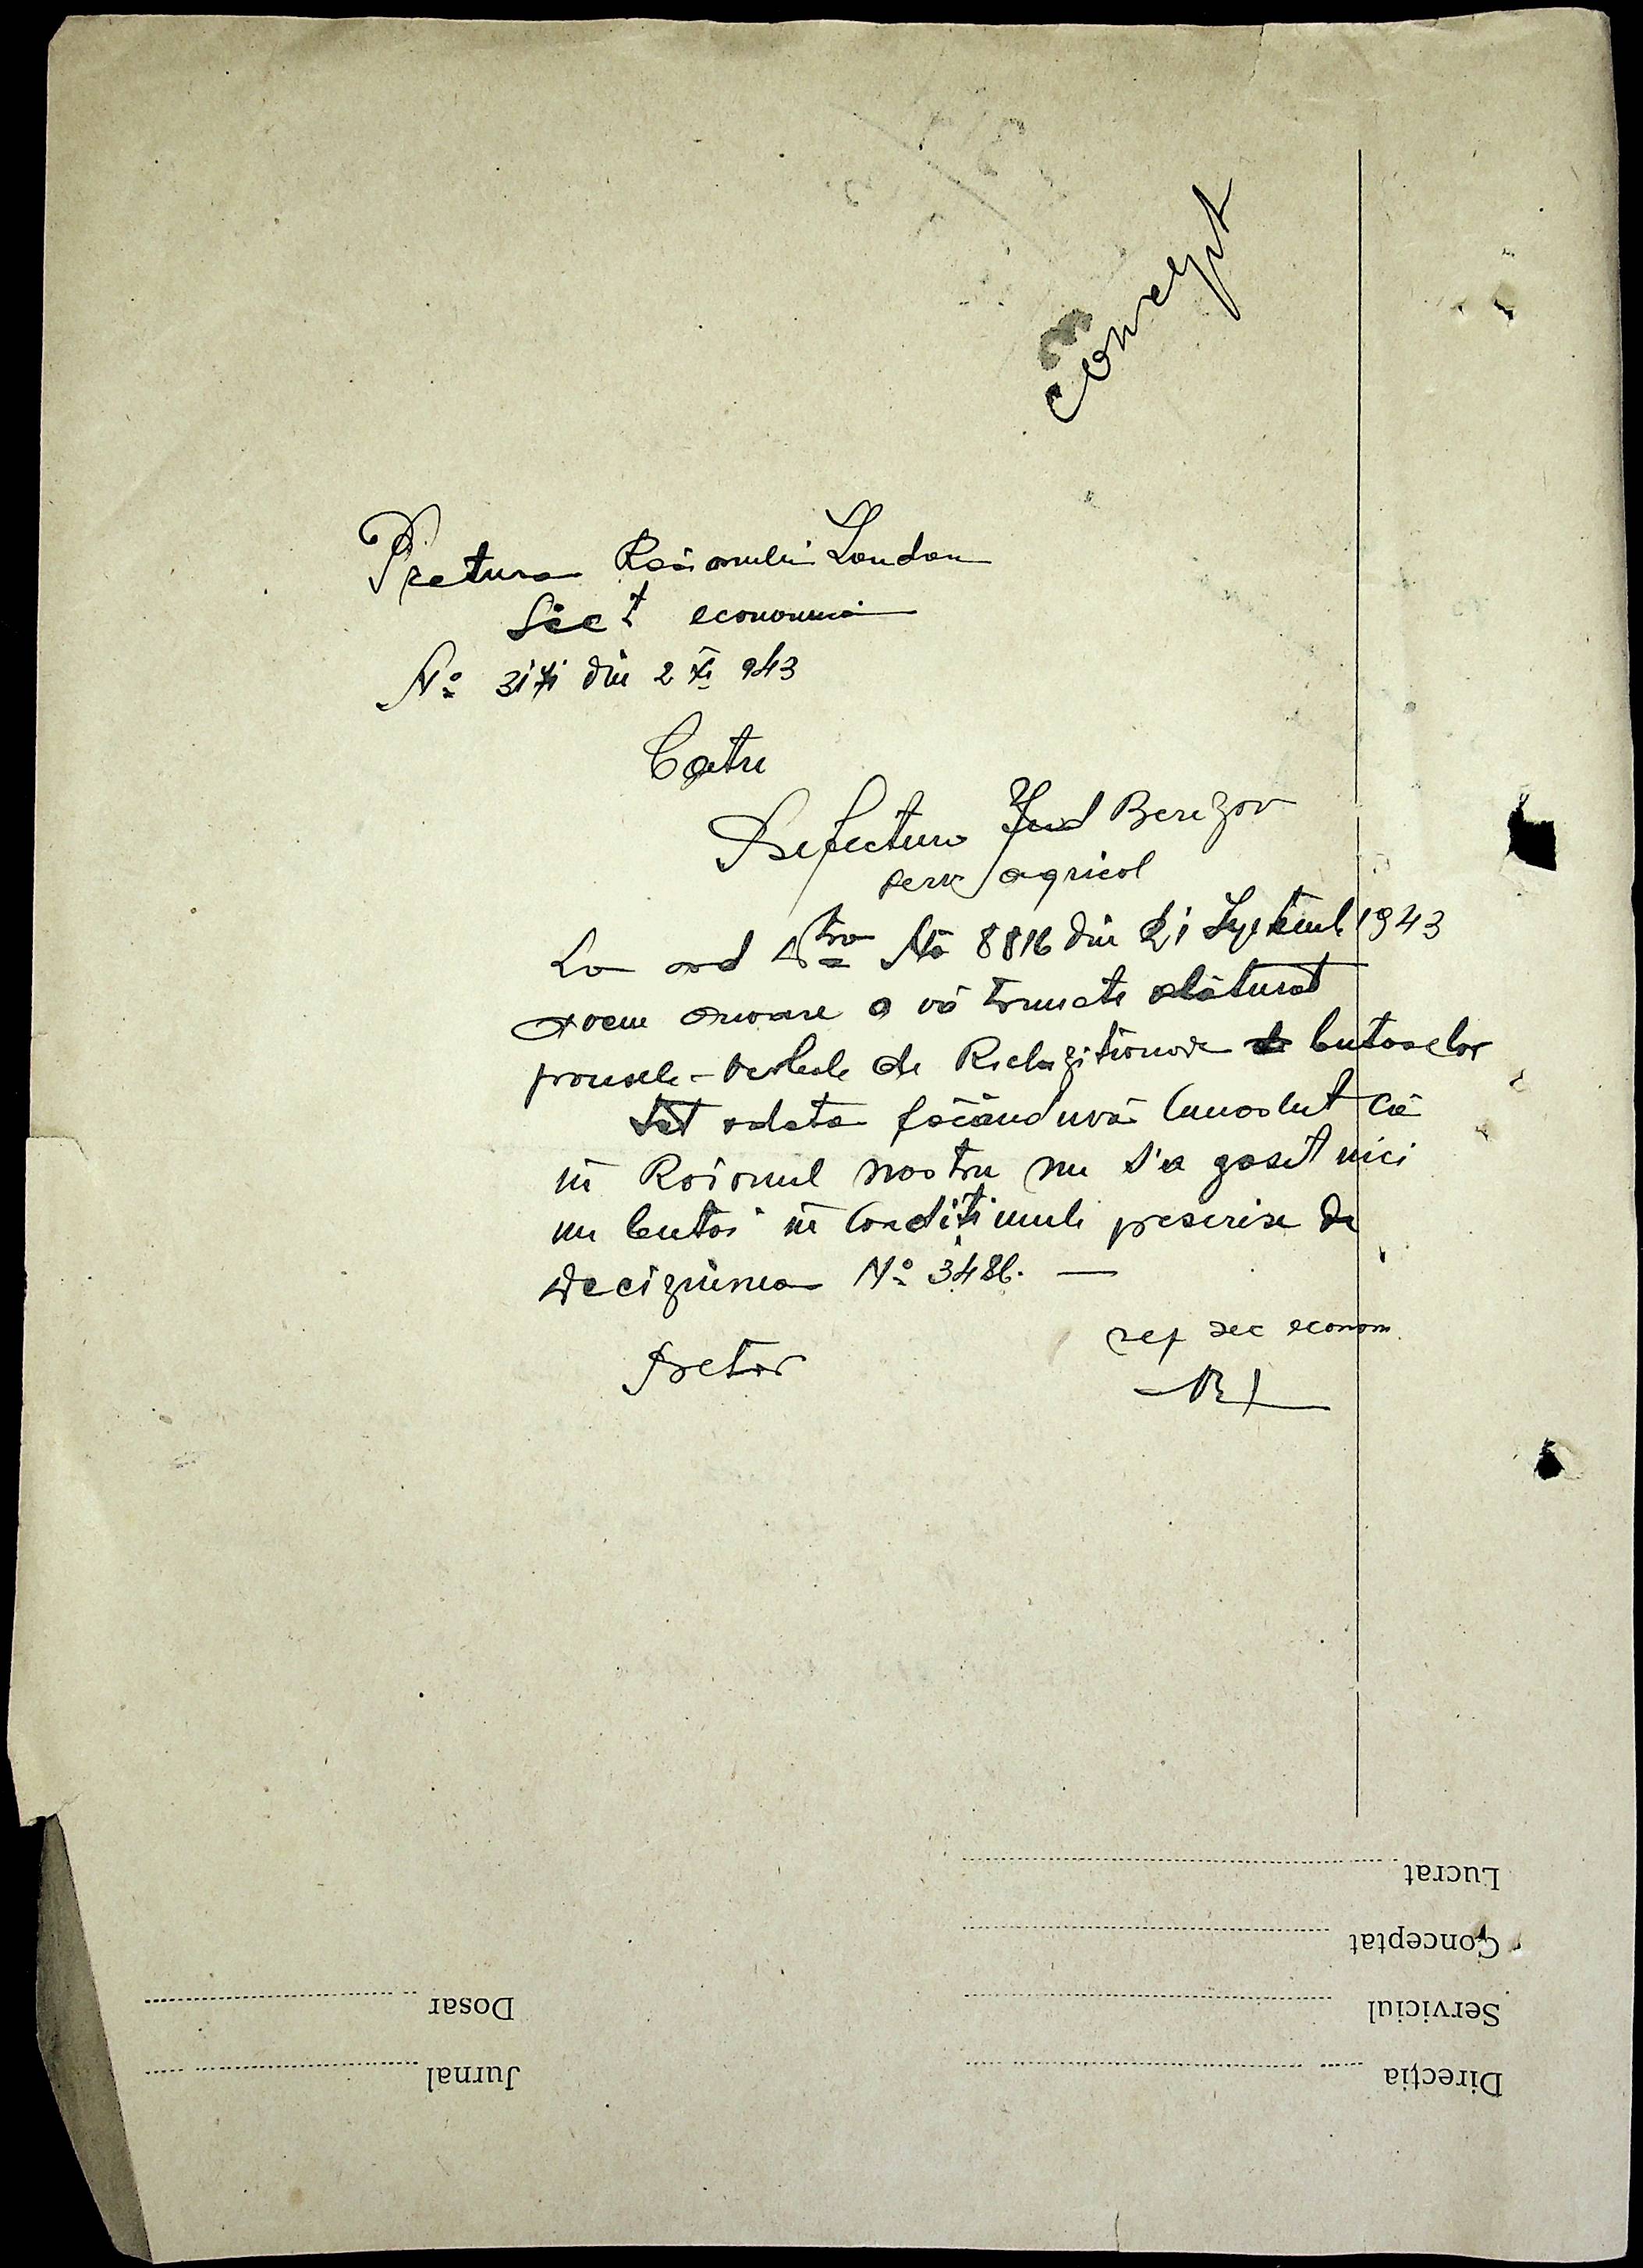 Concept
Pretura Raionului Landau
Sect economica
No din 2 XI 943
Catre
Prefectura Jud Berezov
serv agricol
La ord Dtra No 8816 din 21 Septemb 1943
avem onoare a vă trimete alăturat
procesele-verbale de Rechiziționare butoaelor
Tot odata făcânduvă Cunoscut că
in Raionul nostru nu s'a gasit nici
un butoi in Condițiunele prescrise de
Deciziunea No 3486. —
Pretor
sef sec econom.
Lucrat
Conceptat
Serviciul
Dosar
Direcţia
Jurnal